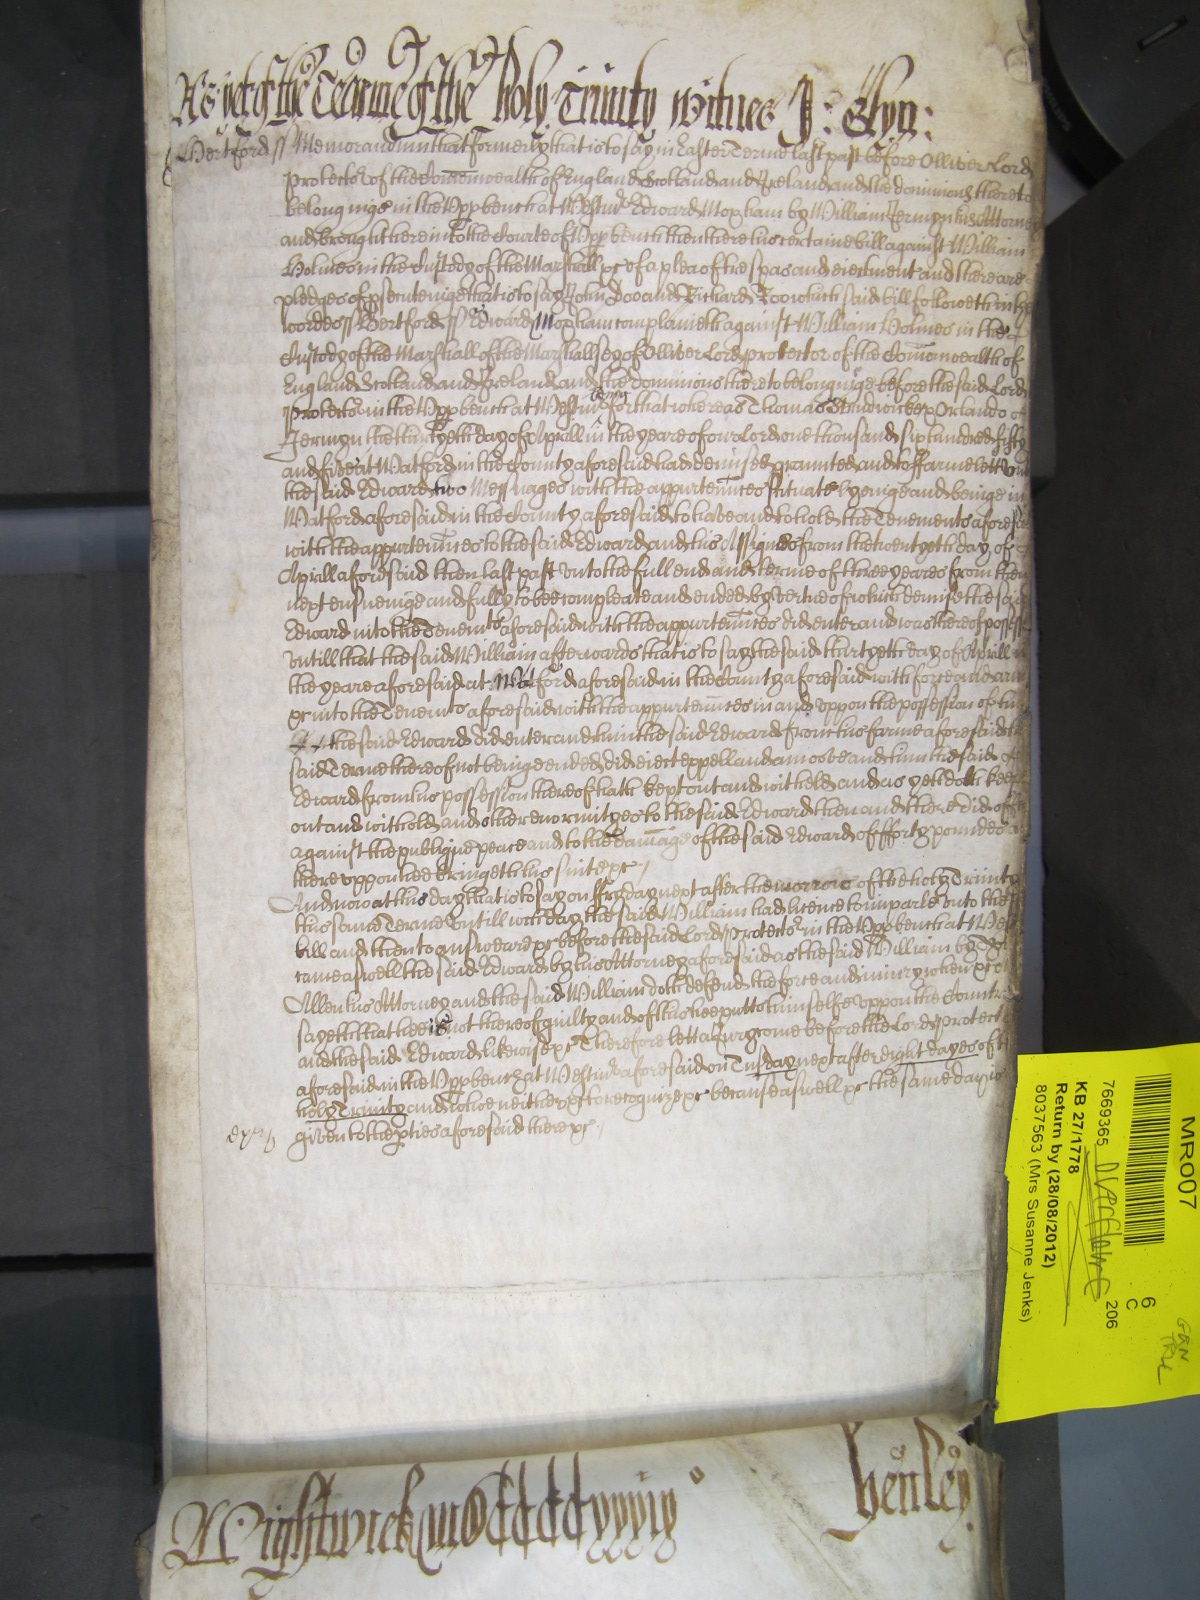 As yet of the Tearme of the holy Trinity Witnes J: Glyn:
Hertford ss Memorandum that formerly that is to say in Easter Terme last past before Olliver Lord
Protector of the Comonwealth of England Scotland and Ireland and the dominions thereto
belonginge in the Vpp bench at Westmr Edward Mopham by William Jermyn his Attorney
and brought here into the Courte of Vpp bench then there his certaine bill against William
Holmes in the Custody of the Marshall &c of a plea of trespas and eiectment and there are
pledges of psecuteinge that is to say John Doo and Richard Roo which said bill followeth in these
wordes ss Hertford ss Edward Mopham complaineth against William Holmes in the
Custody of the Marshall of the Marshallsey of Olliver Lord Protector of the Comonwealth of
England Scotland and Ireland and the Dominions thereto belonginge before the said Lord
Protector in the Vpp bench at Westmr for that whereas Thomas
Jermyn the thirtyeth day of Aprill in the yeare of our Lord one thousand six hundred fifty
and five at Watford in the County aforesaid had demised graunted and to ffarme lett vnto
the said Edward two Messuages with the appurtennces scituate lyeinge and beinge in
Watford aforesaid in the County aforesaid to have and to hold the Tenements aforesaid
with the appurtennces to the said Edward and his Assignes from the twentyeth day of
Aprill aforesaid then last past vnto the full end and terme of three yeares from then
next ensueinge and fully to bee compleate and ended by vertue of which demise the said
Edward into the Tenemts aforesaid with the appurtennces did enter and was thereof possessed
vntill that the said William afterwards that is to say the said thirtyeth day of Aprill in
the yeare aforesaid at Watford aforesaid in the County aforesaid with force and armes
&c into the Tenemts aforesaid with the appurtennces in and vppon the possession of him
the said Edward did enter and him the said Edward from his farme aforesaid his
said Terme thereof not beinge ended did eiect expell and amoove and him the said
Edward from his possession thereof hath kept out and witheld and as yet doth keepe
out and withold and other enormityes to the said Edward then and there did offer
against the publique peace and to the damage of the said Edward of fforty poundes and
there vppon hee bringeth his suite &c
And now at this day that is to say on ffryday next after the morrow of the holy Trinity
this same Terme vntill wch day the said William had licence to imparle vnto the
bill and then to answeare &c before the said Lord Protector in the Vpp bench at Westmr
came aswell the said Edward by his Attorney aforesaid as the said William by
Allen his Attorney and the said William doth defend the force and iniury when &c
sayeth that hee is not thereof guilty and of this hee putts himselfe vppon the Countrey
and the said Edward likewise &c Therefore lett a Jury come before the Lord Protector
aforesaid in the Vpp bench at Westmr aforesaid on Tusday next after eight dayes of the
holy Trinity and who neither &c to recognize &c because aswell &c the same day is
given to the pties aforesaid there &c
exr
Wightwick
henley
MR007
6
C
206
7669365
KB 27/1778
Return by (28/08/2012)
8037563 (Mrs Susanne Jenks)